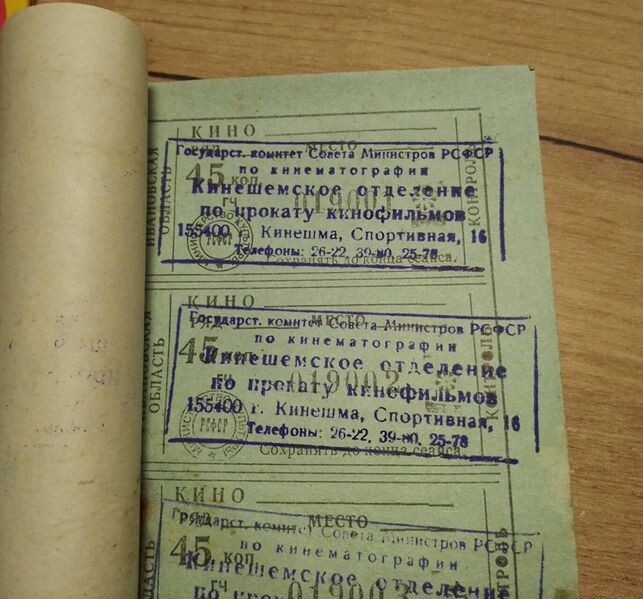 КИНО
РЯД МЕСТО
Государст. комитет Совета Министров РСФСР
45 коп.
по кинематографии
Кинешемское отделение
ГЧ 019001
по прокату кинофильмов
155400 г. Кинешма, Спортивная, 16
МИНИСТЕРСТВО КУЛЬТУРЫ РСФСР
Телефоны: 26-22, 39-80, 25-78
Сохранять до конца сеанса.
ИВАНОВСКАЯ ОБЛАСТЬ
КОНТРОЛЬ
КИНО
РЯД МЕСТО
Государст. комитет Совета Министров РСФСР
45 коп.
по кинематографии
Кинешемское отделение
ГЧ 019002
по прокату кинофильмов
155400 г. Кинешма, Спортивная, 16
МИНИСТЕРСТВО КУЛЬТУРЫ РСФСР
Телефоны: 26-22, 39-80, 25-78
Сохранять до конца сеанса.
ИВАНОВСКАЯ ОБЛАСТЬ
КОНТРОЛЬ
КИНО
РЯД МЕСТО
Государст. комитет Совета Министров РСФСР
45 коп.
по кинематографии
Кинешемское отделение
ГЧ 019003
по прокату
ОБЛАСТЬ
КОНТРОЛЬ